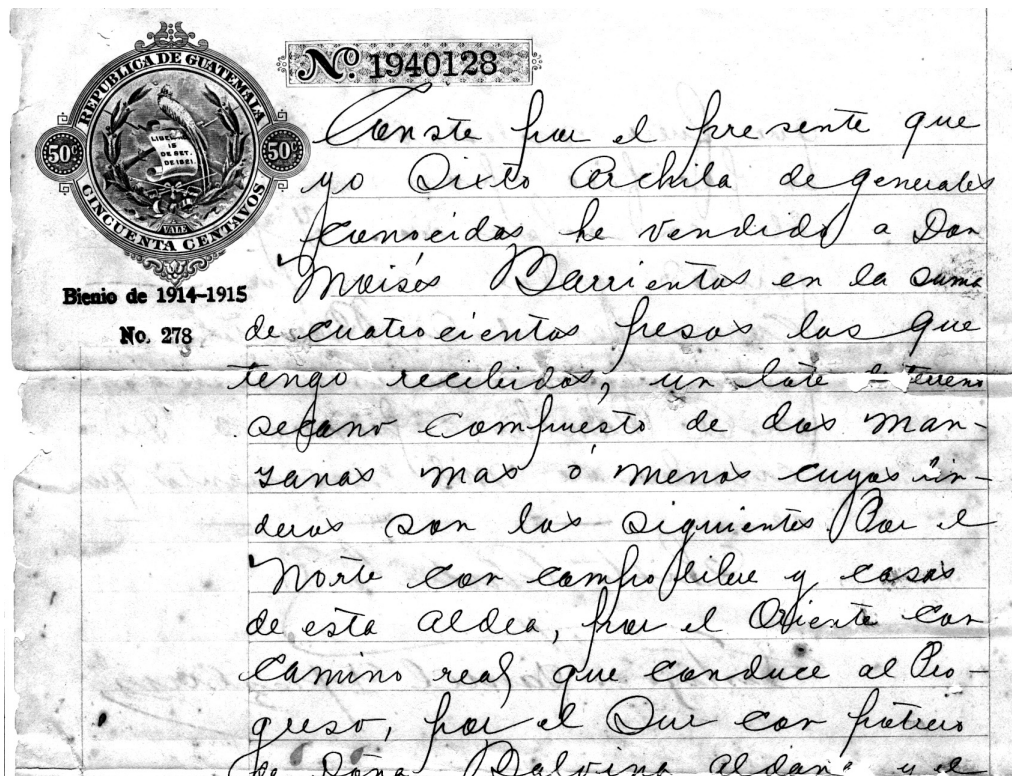 REPUBLICA DE GUATEMALA
50¢ 50¢
LIBERTAD
15
DE SET.
DE 1821
VALE
CINCUENTA CENTAVOS
Nº 1940128
Bienio de 1914-1915
No. 278
Conste por el presente que
yo Sixto Archila de generales
conocidas he vendido a Don
Moisés Barrientos en la suma
de cuatrocientos pesos los que
tengo recibidos, un lote de terreno
secano compuesto de dos man-
zanas mas ó menos cuyos lin-
deros son los siguientes Por el
Norte con campo libre y casas
de esta aldea, por el Oriente con
camino real que conduce al Pro-
greso, por el Sur con potrero
de Doña Balvina Aldana y el